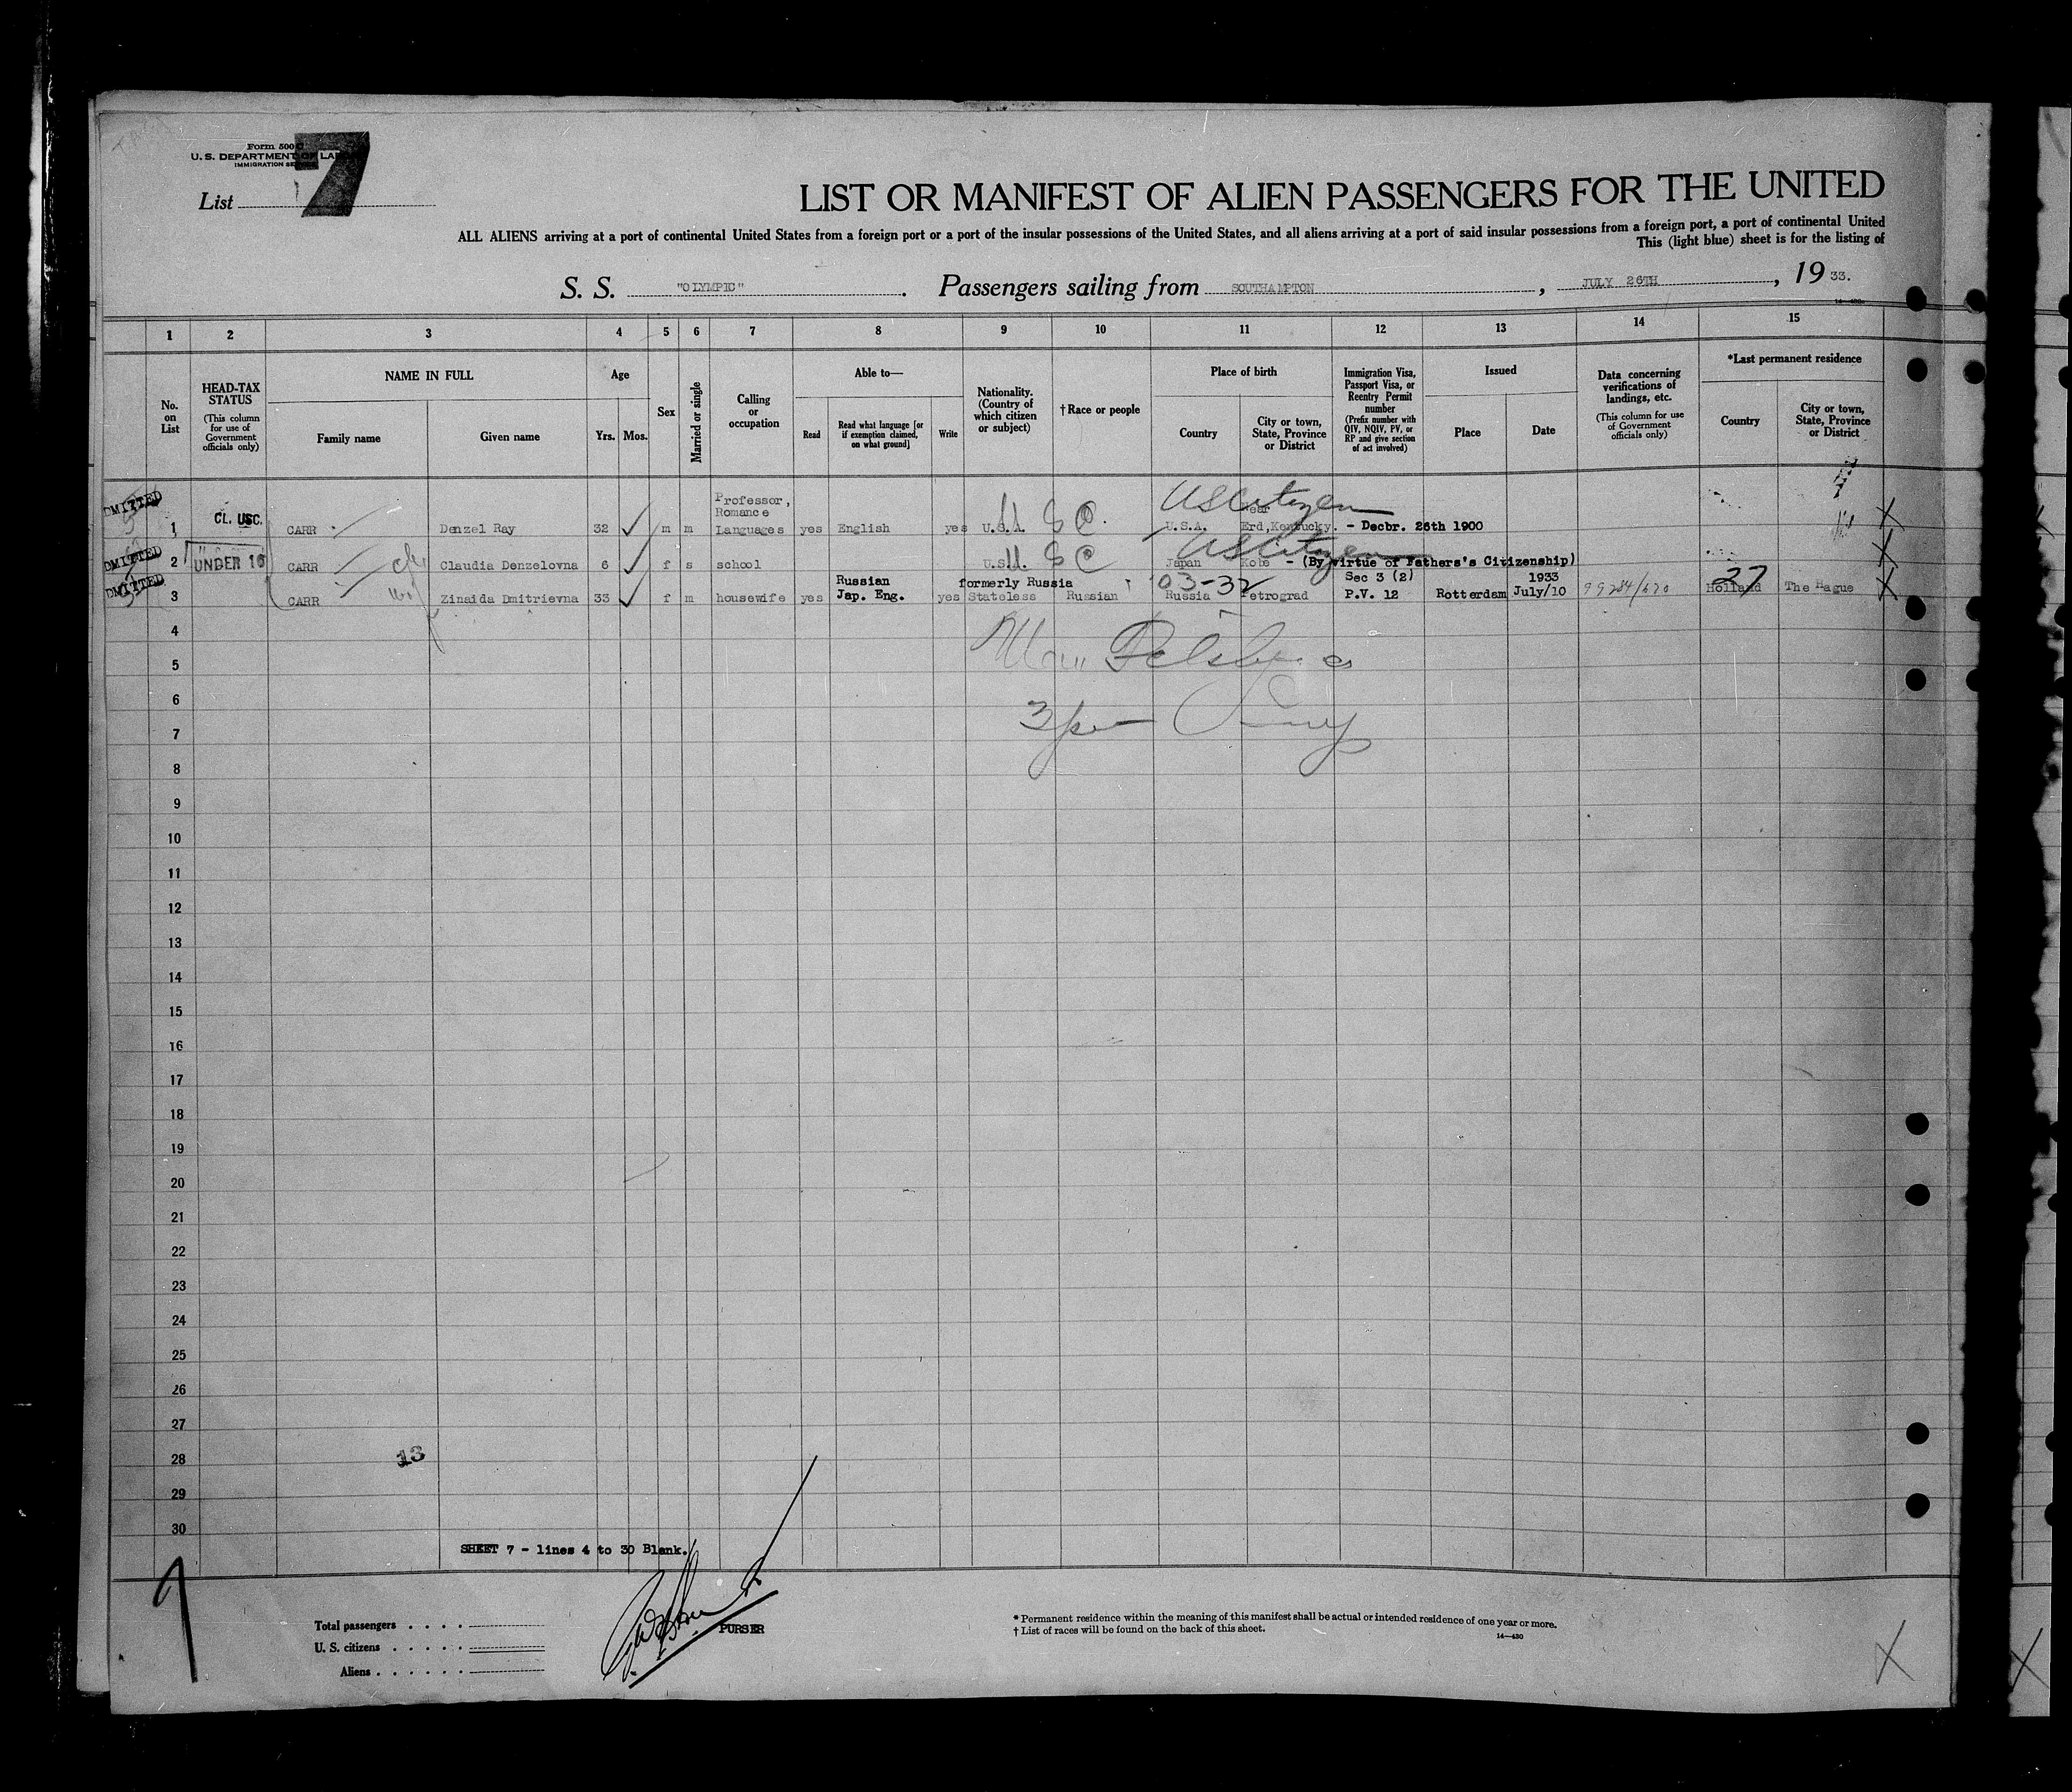 Form 500
U. S. DEPARTMENT OF LA
IMMIGRATION SE
7
List
LIST OR MANIFEST OF ALIEN PASSENGERS FOR THE UNITED
ALL ALIENS arriving at a port of continental United States from a foreign port or a port of the insular possessions of the United States, and all aliens arriving at a port of said insular possessions from a foreign port, a port of continental United
This (light blue) sheet is for the listing of
S. S. "OLYMPIC". Passengers sailing from SOUTHAMPTON, JULY 26TH, 19 33.
1 2 3 4 5 6 7 8 9 10 11 12 13 14 15
No. on List
HEAD-TAX STATUS
(This column for use of Government officials only)
NAME IN FULL
Family name Given name
Age
Yrs. Mos.
Sex
Married or single
Calling or occupation
Able to—
Read
Read what language [or if exemption claimed, on what ground]
Write
Nationality. (Country of which citizen or subject)
†Race or people
Place of birth
Country
City or town, State, Province or District
Immigration Visa, Passport Visa, or Reentry Permit number
(Prefix number with QIV, NQIV, PV, or RP and give section of act involved)
Issued
Place Date
Data concerning verifications of landings, etc.
(This column for use of Government officials only)
*Last permanent residence
Country
City or town, State, Province or District
DMITTED
1 CL. USC. CARR Denzel Ray 32 m m Professor, Romance Languages yes English yes U.S.A. U S C. US Citizen U.S.A. near Erd, Kentucky. - Decbr. 26th 1900
DMITTED
2 UNDER 16 CARR Claudia Denzelovna 6 f s school U.S. U S C US Citizen Japan Kobe - (By virtue of Fathers's Citizenship)
DMITTED
3 CARR wf Zinaida Dmitrievna 33 f m housewife yes Russian Jap. Eng. yes formerly Russia Stateless Russian 03-32 Russia Petrograd Sec 3 (2) P.V. 12 Rotterdam 1933 July/10 99284/670 27 Holland The Hague
4
5
6
7
8
9
10
11
12
13
14
15
16
17
18
19
20
21
22
23
24
25
26
27
28
13
29
30
SHEET 7 - lines 4 to 30 Blank.
PURSER
Total passengers
U. S. citizens
Aliens
* Permanent residence within the meaning of this manifest shall be actual or intended residence of one year or more.
† List of races will be found on the back of this sheet.
14—430